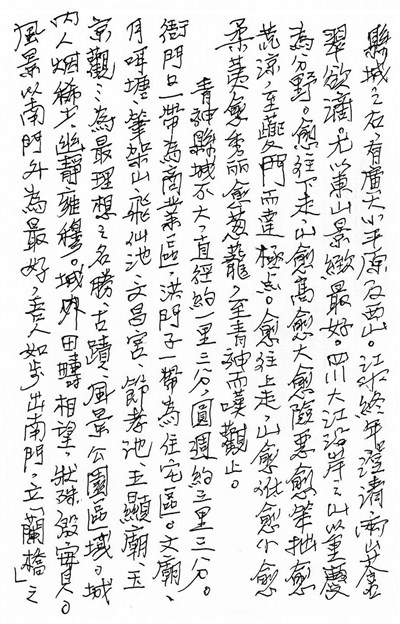 縣城之右,有廣大小平原及西山。江水終年澄清,兩岸含
翠欲滴。尤以東山景緻最好。四川大江沿岸之山以重慶
為分野。愈往下走,山愈高愈大愈險惡愈笨拙愈
荒涼,至夔門而達極点。愈往上走,山愈低愈小愈
柔美愈秀麗愈蔥蘢,至青神而嘆觀止。
青神縣城不大,直經約一里三分,圓週約三里三分。
衙門口一帶為商業區,洪門子一帶為住宅區。文廟、
月咡塘、筆架山、飛仙池、文昌宮、節孝池、玉顯廟、玉
京觀…為最理想之名勝古蹟、風景公園區域。城
內人烟稀少,幽靜雍穆。城外田疇相望,狀殊殷實。
風景以南門外為最好,吾人如步出南門,立「蘭橋」之